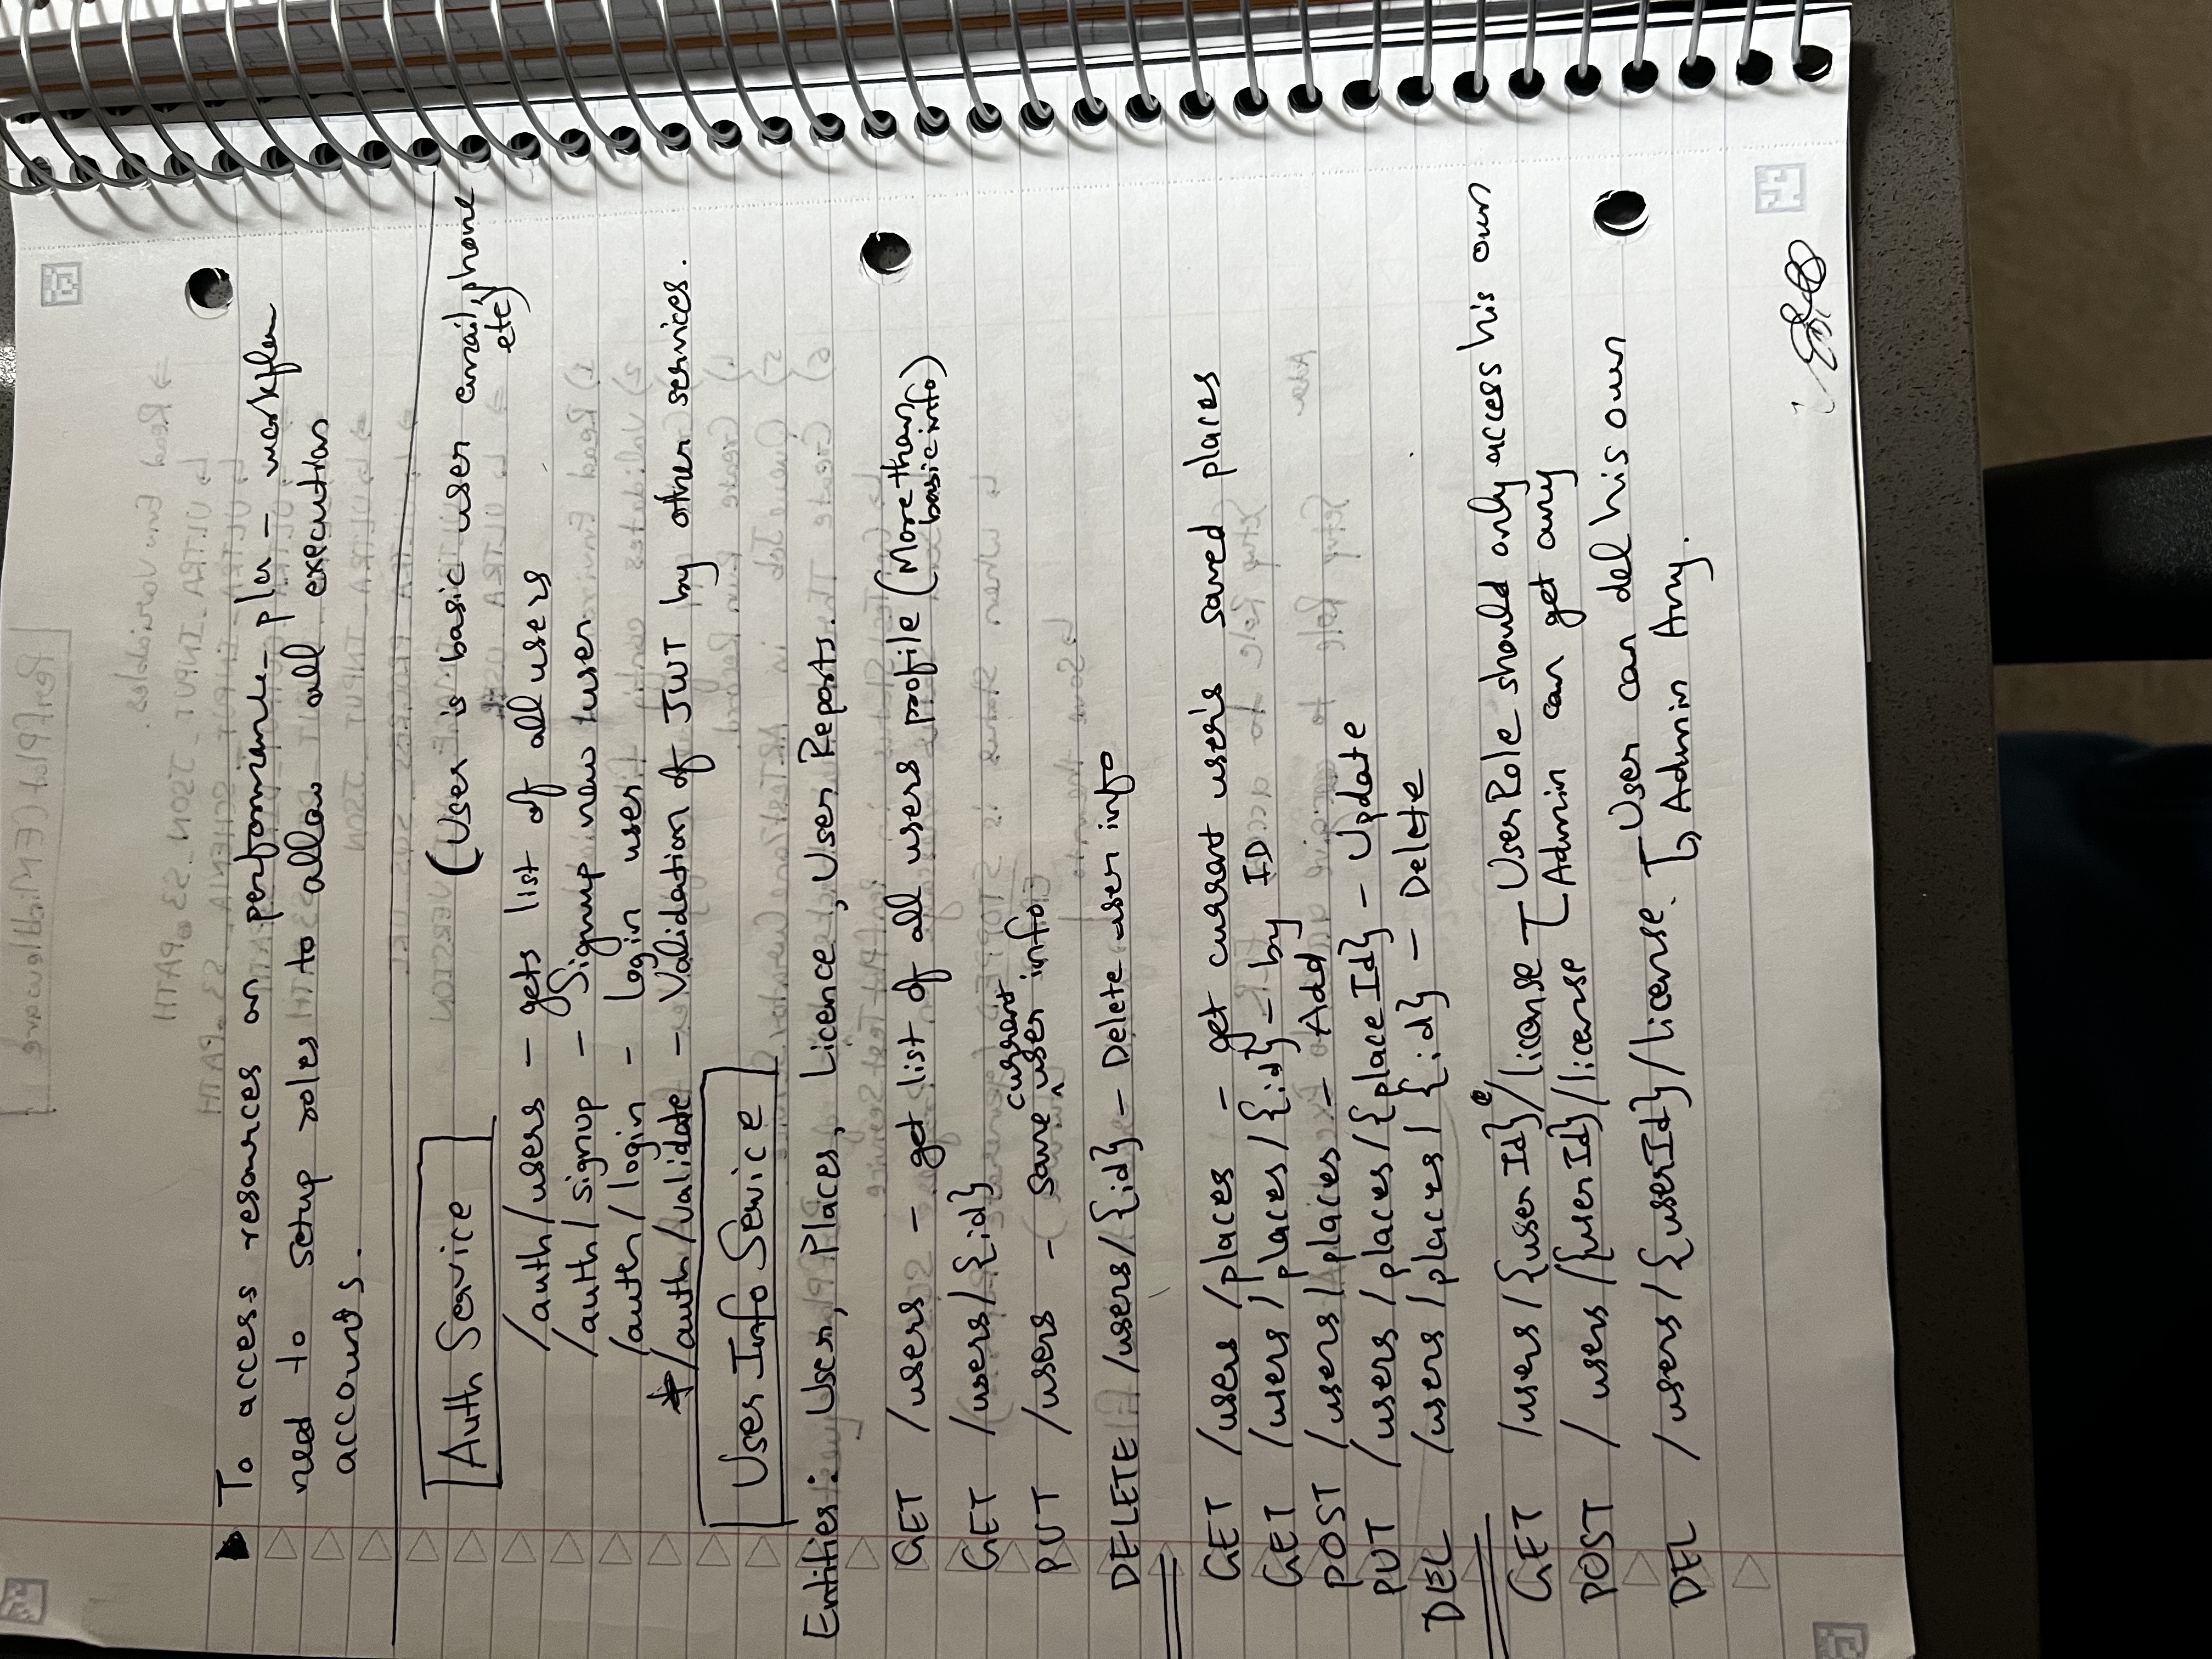 To access resources on performance - plan - workflow
need to setup roles to allow all execution
accounts.
Auth Service
(User is basic user email, phone
etc)
/auth/users - gets list of all users
/auth/signup - Signup new user
/auth/login - Login user
*/auth/validate - Validation of JWT by other services.
User Info Service
Entities: User, Places, Licence, User Reports.
GET /users - get list of all users profile (More than
basic info)
GET /users/{id}
current
PUT /users - save ^ user info
DELETE /users/{id} - Delete user info
GET /users/places - get current user's saved places
GET /users/places/{id} - by ID
POST /users/places - Add
PUT /users/places/{placeId} - Update
DEL /users/places/{id} - Delete
GET /users/{userId}/license - UserRole should only access his own
Admin can get any
POST /users/{userId}/license
User can del his own
DEL /users/{userId}/license.
Admin Any.